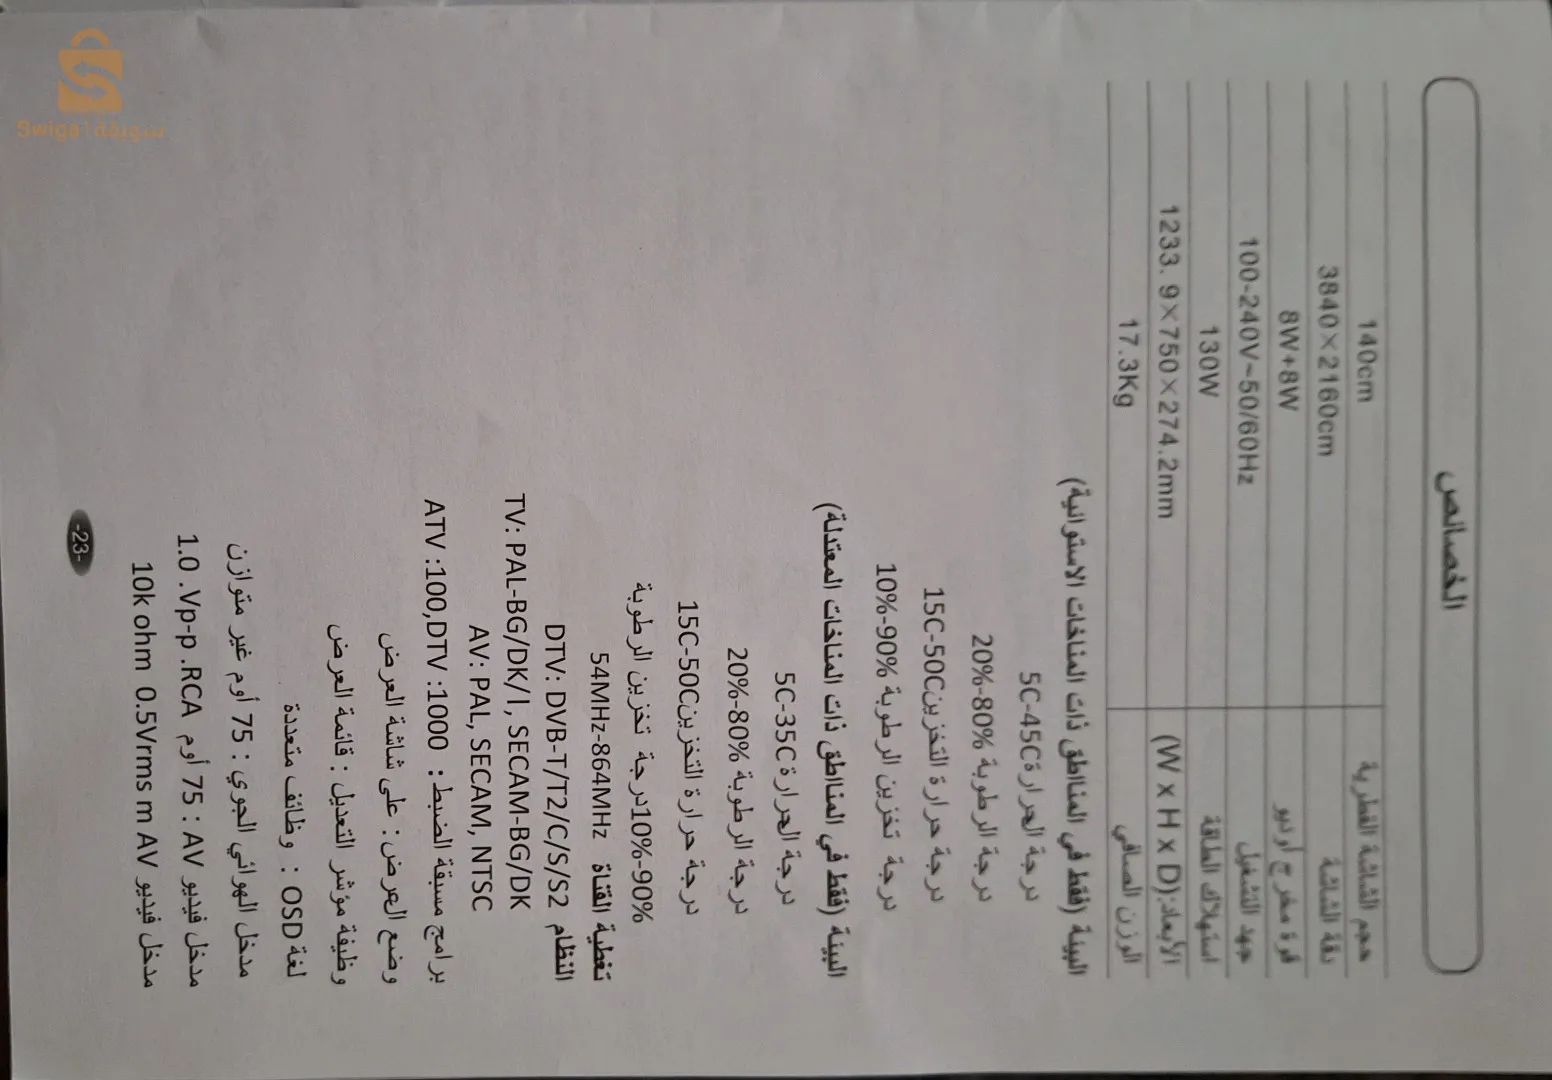 الخصائص
حجم الشاشة القطرية 140cm
دقة الشاشة 3840×2160cm
قوة مخرج أوديو 8W+8W
جهد التشغيل 100-240V~50/60Hz
استهلاك الطاقة 130W
الأبعاد:(W x H x D) 1233. 9×750×274.2mm
الوزن الصافي 17.3Kg
البيئة (فقط في المنااطق ذات المناخات الاستوائية)
درجة الحرارة5C-45C
درجة الرطوبة 20%-80%
درجة حرارة التخزين15C-50C
درجة تخزين الرطوبة 10%-90%
البيئة (فقط في المنااطق ذات المناخات المعتدلة)
درجة الحرارة 5C-35C
درجة الرطوبة 20%-80%
درجة حرارة التخزين15C-50C
10%-90%درجة تخزين الرطوبة
تغطية القناة 54MHz-864MHz
النظام DTV: DVB-T/T2/C/S/S2
TV: PAL-BG/DK/I, SECAM-BG/DK
AV: PAL, SECAM, NTSC
برامج مسبقة الضبط : ATV :100,DTV :1000
وضع العرض : على شاشة العرض
وظيفة مؤشر التعديل : قائمة العرض
لغة OSD : وظائف متعددة
مدخل الهوائي الجوي : 75 أوم غير متوازن
مدخل فيديو AV : 75 أوم 1.0 .Vp-p .RCA
مدخل فيديو AV 10k ohm 0.5Vrms m
-23-
Swiga1 سويقة